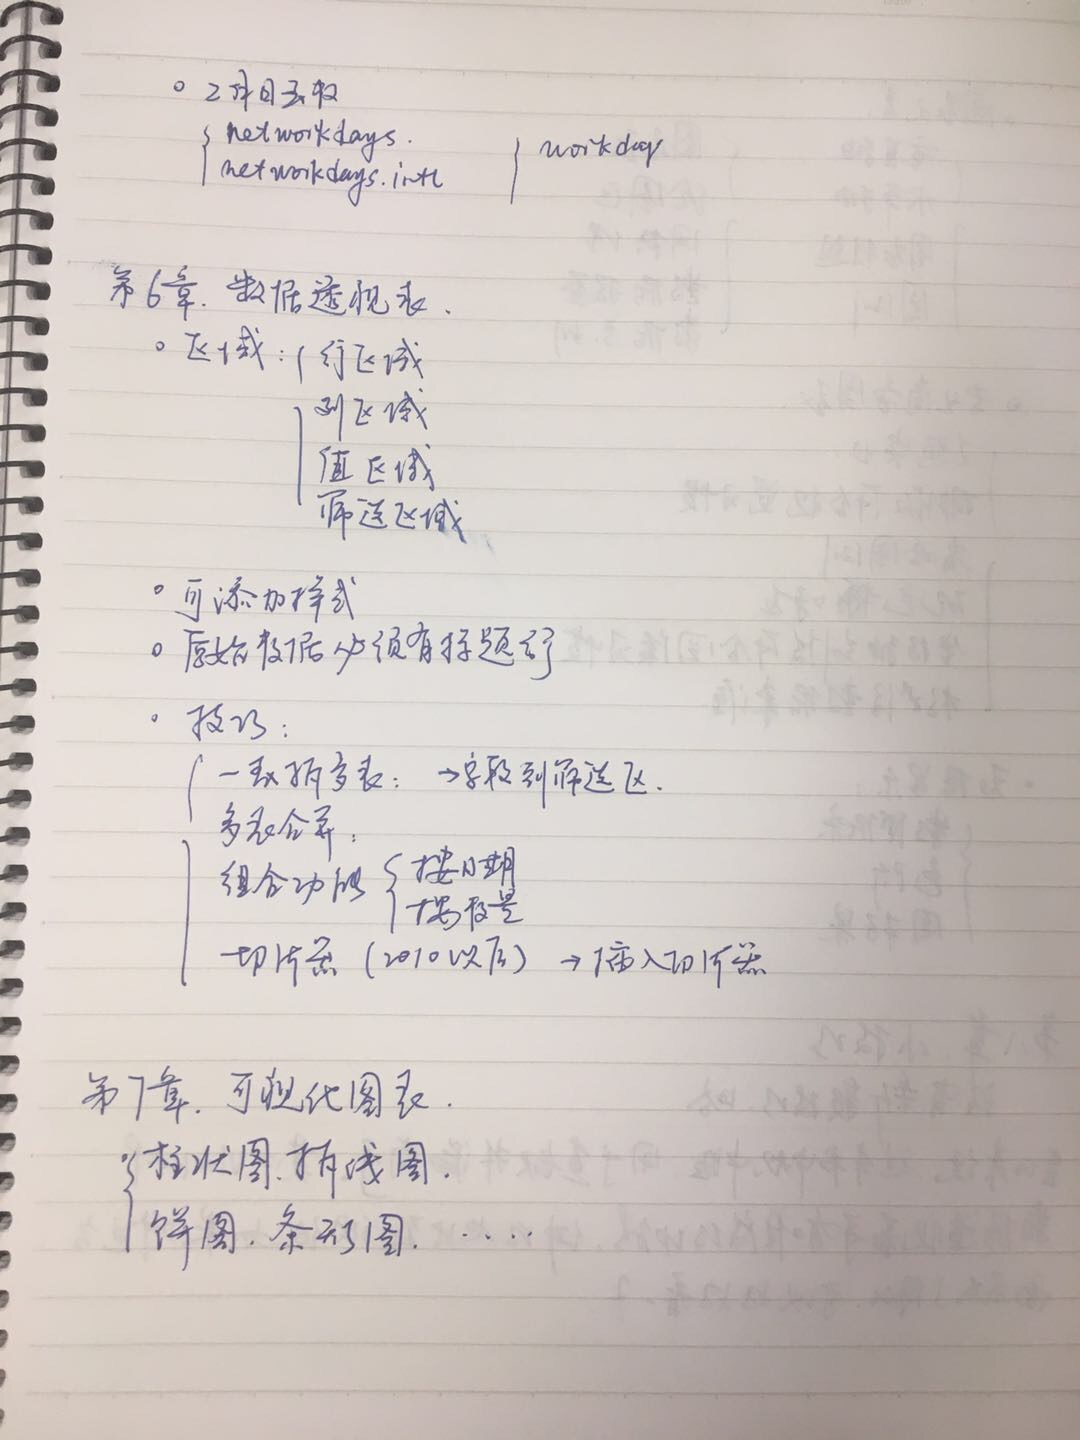 工作日函数
networkdays.
networkdays.intl
workday
第6章. 数据透视表.
区域: 行区域
列区域
值区域
筛选区域
可添加样式
原始数据必须有标题行
技巧:
一表拆多表: →字段到筛选区.
多表合并:
组合功能 按日期
按数量
切片器 (2010以后) → 插入切片器
第7章. 可视化图表.
柱状图. 折线图.
饼图. 条形图. ·····